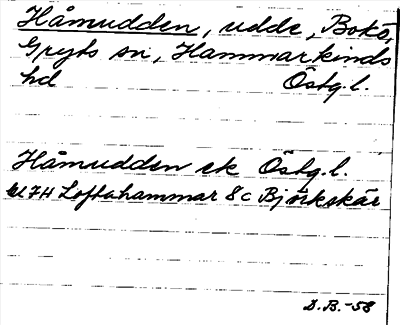 Håmudden, udde, Bokö,
Gryts sn, Hammarkinds
hd Östg.l.
Håmudden ek Östg.l.
bl 74 Loftahammar 8c Björkskär
D.B.-58